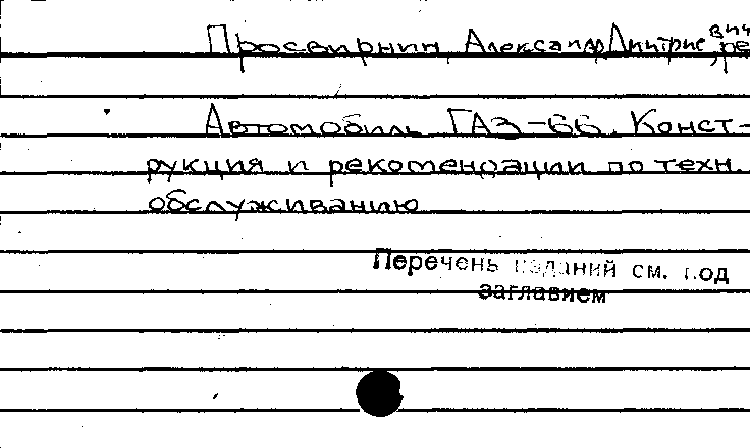 Просвирнин, Александр Дмитриевич, ре
Автомобиль ГАЗ-66. Конст-
рукция и рекомендации по техн.
обслуживанию
Перечень изданий см. под
заглавием